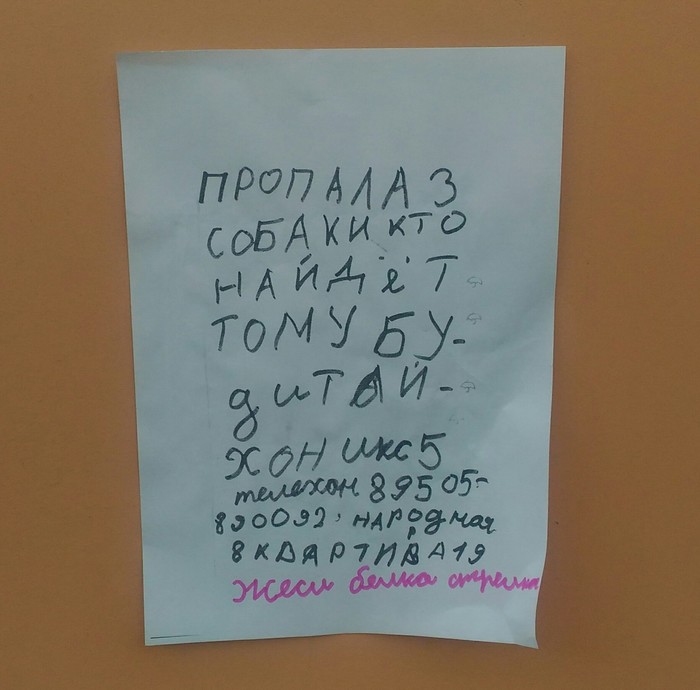 ПРОПАЛА 3
СОБАКИ КТО
НАЙДёТ
ТОМУ БУ-
дитАЙ-
ХОН икс5
телехон 89505-
890092, НАРОДНАЯ
8 КВАРТИВА 19
Жеси белка стрелка